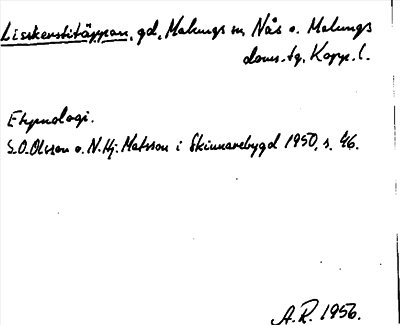 Lisskerstitäppan, gd, Malungs sn, Nås o. Malungs
doms.tg, Kopp. l.
Etymologi.
S.O. Olsson o. N. Hj. Matsson i Skinnarebygd 1950, s. 46.
A.R. 1956.